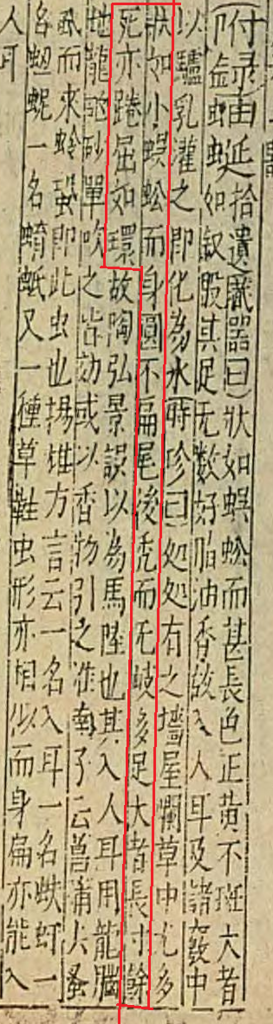 附録蚰蜒拾遺藏器曰狀如蜈蚣而甚長色正黃不斑大者
如釵股其足无數好脂油香故入人耳及諸竅中
以驢乳灌之即化為水時珍曰処処有之墻屋爛草中尤多
狀如小蜈蚣而身圓不扁尾後禿而无岐多足大者長寸餘
死亦踡屈如環故陶弘景誤以為馬陸也其入人耳用龍腦
地龍硇砂單吹之皆効或以香物引之淮南子云菖蒲去蚤
虱而來蛉蛩即此虫也揚雄方言云一名入耳一名蚨虶一
名蚭一名蛕蚔又一種草鞋虫形亦相似而身扁亦能入
人耳